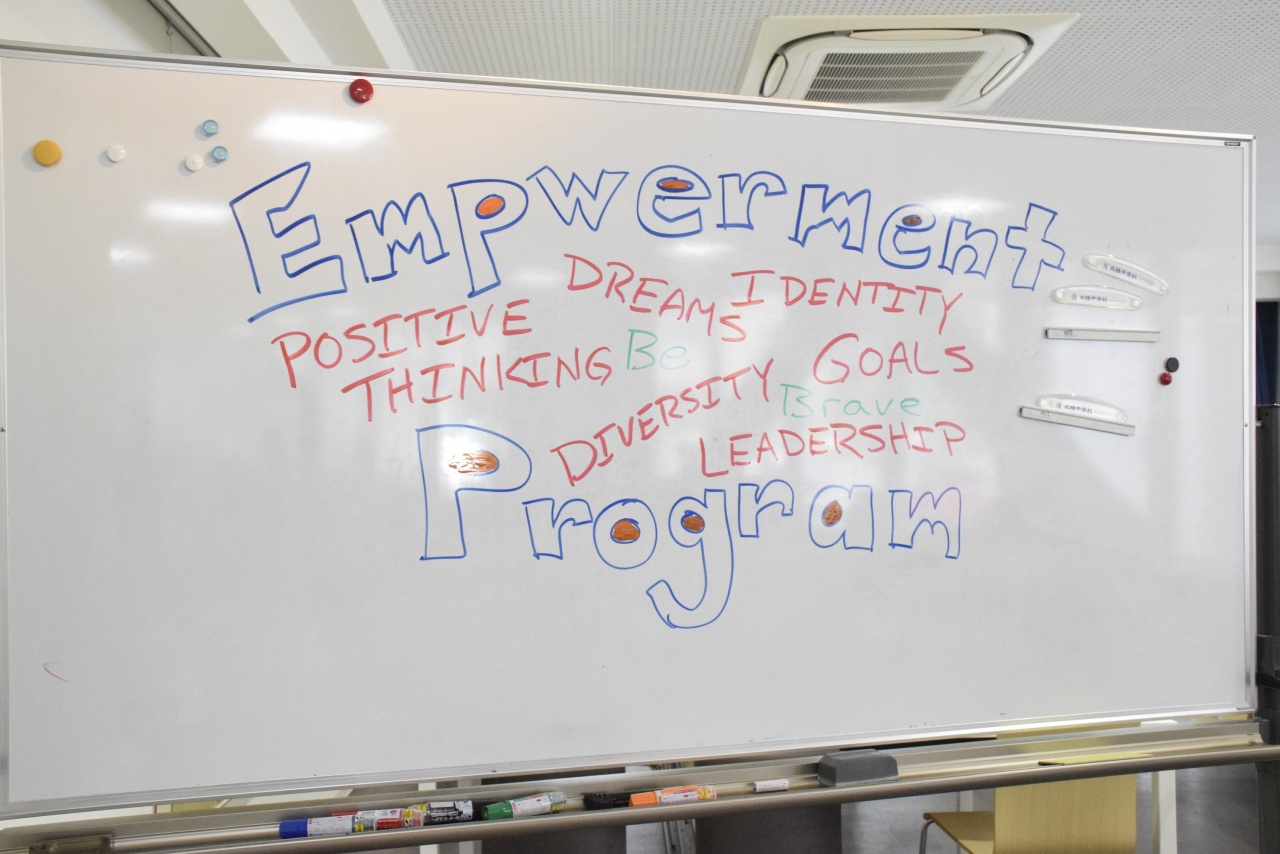 Empwerment
DREAMS IDENTITY
POSITIVE
THINKING Be
DIVERSITY GOALS
Brave
LEADERSHIP
Program